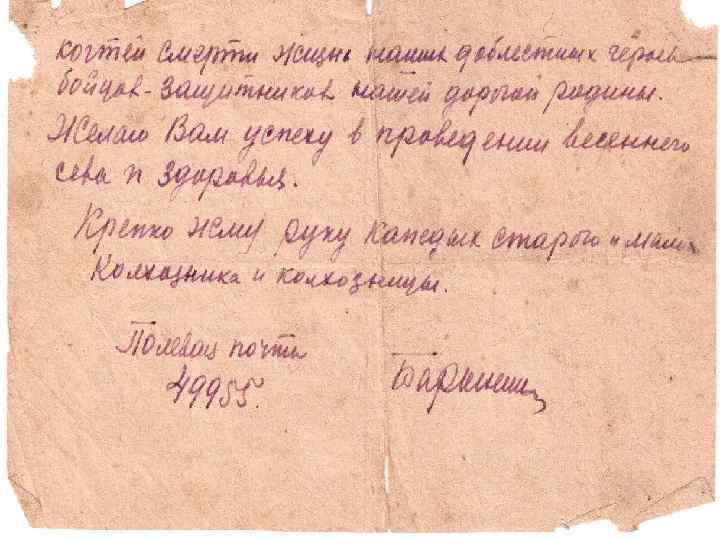 когтей смерти жизнь наших доблестных героев
бойцов-защитников нашей дорогой родины.
Желаю Вам успеху в проведении весеннего
сева и здоровья.
Крепко жму руку каждых старого и мал
колхозника и колхозницы.
Полевая почта
49955.